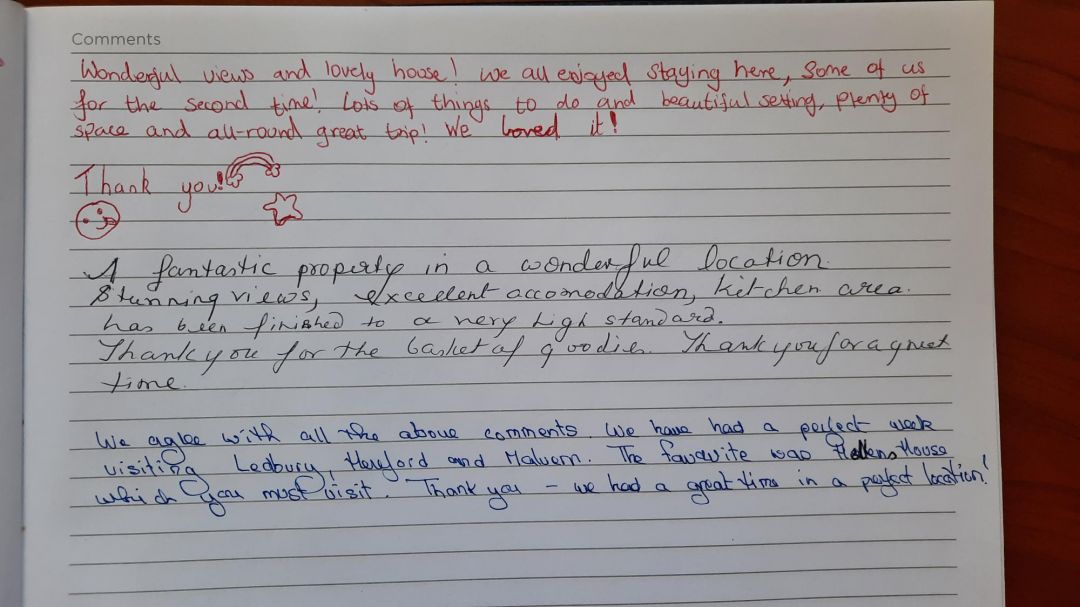 Comments
Wonderful views and lovely house! We all enjoyed staying here, Some of us
for the second time! Lots of things to do and beautiful setting, plenty of
space and all-round great trip! We loved it!
Thank you!
A fantastic property in a wonderful location.
Stunning views, excellent accomodation, kitchen area.
has been finished to a very high standard.
Thank you for the basket of goodies. Thank you for a great
time.
We agree with all the above comments. We have had a perfect week
visiting Ledbury, Hereford and Malvern. The favourite was Hellens House
which you must visit. Thank you - we had a great time in a perfect location!